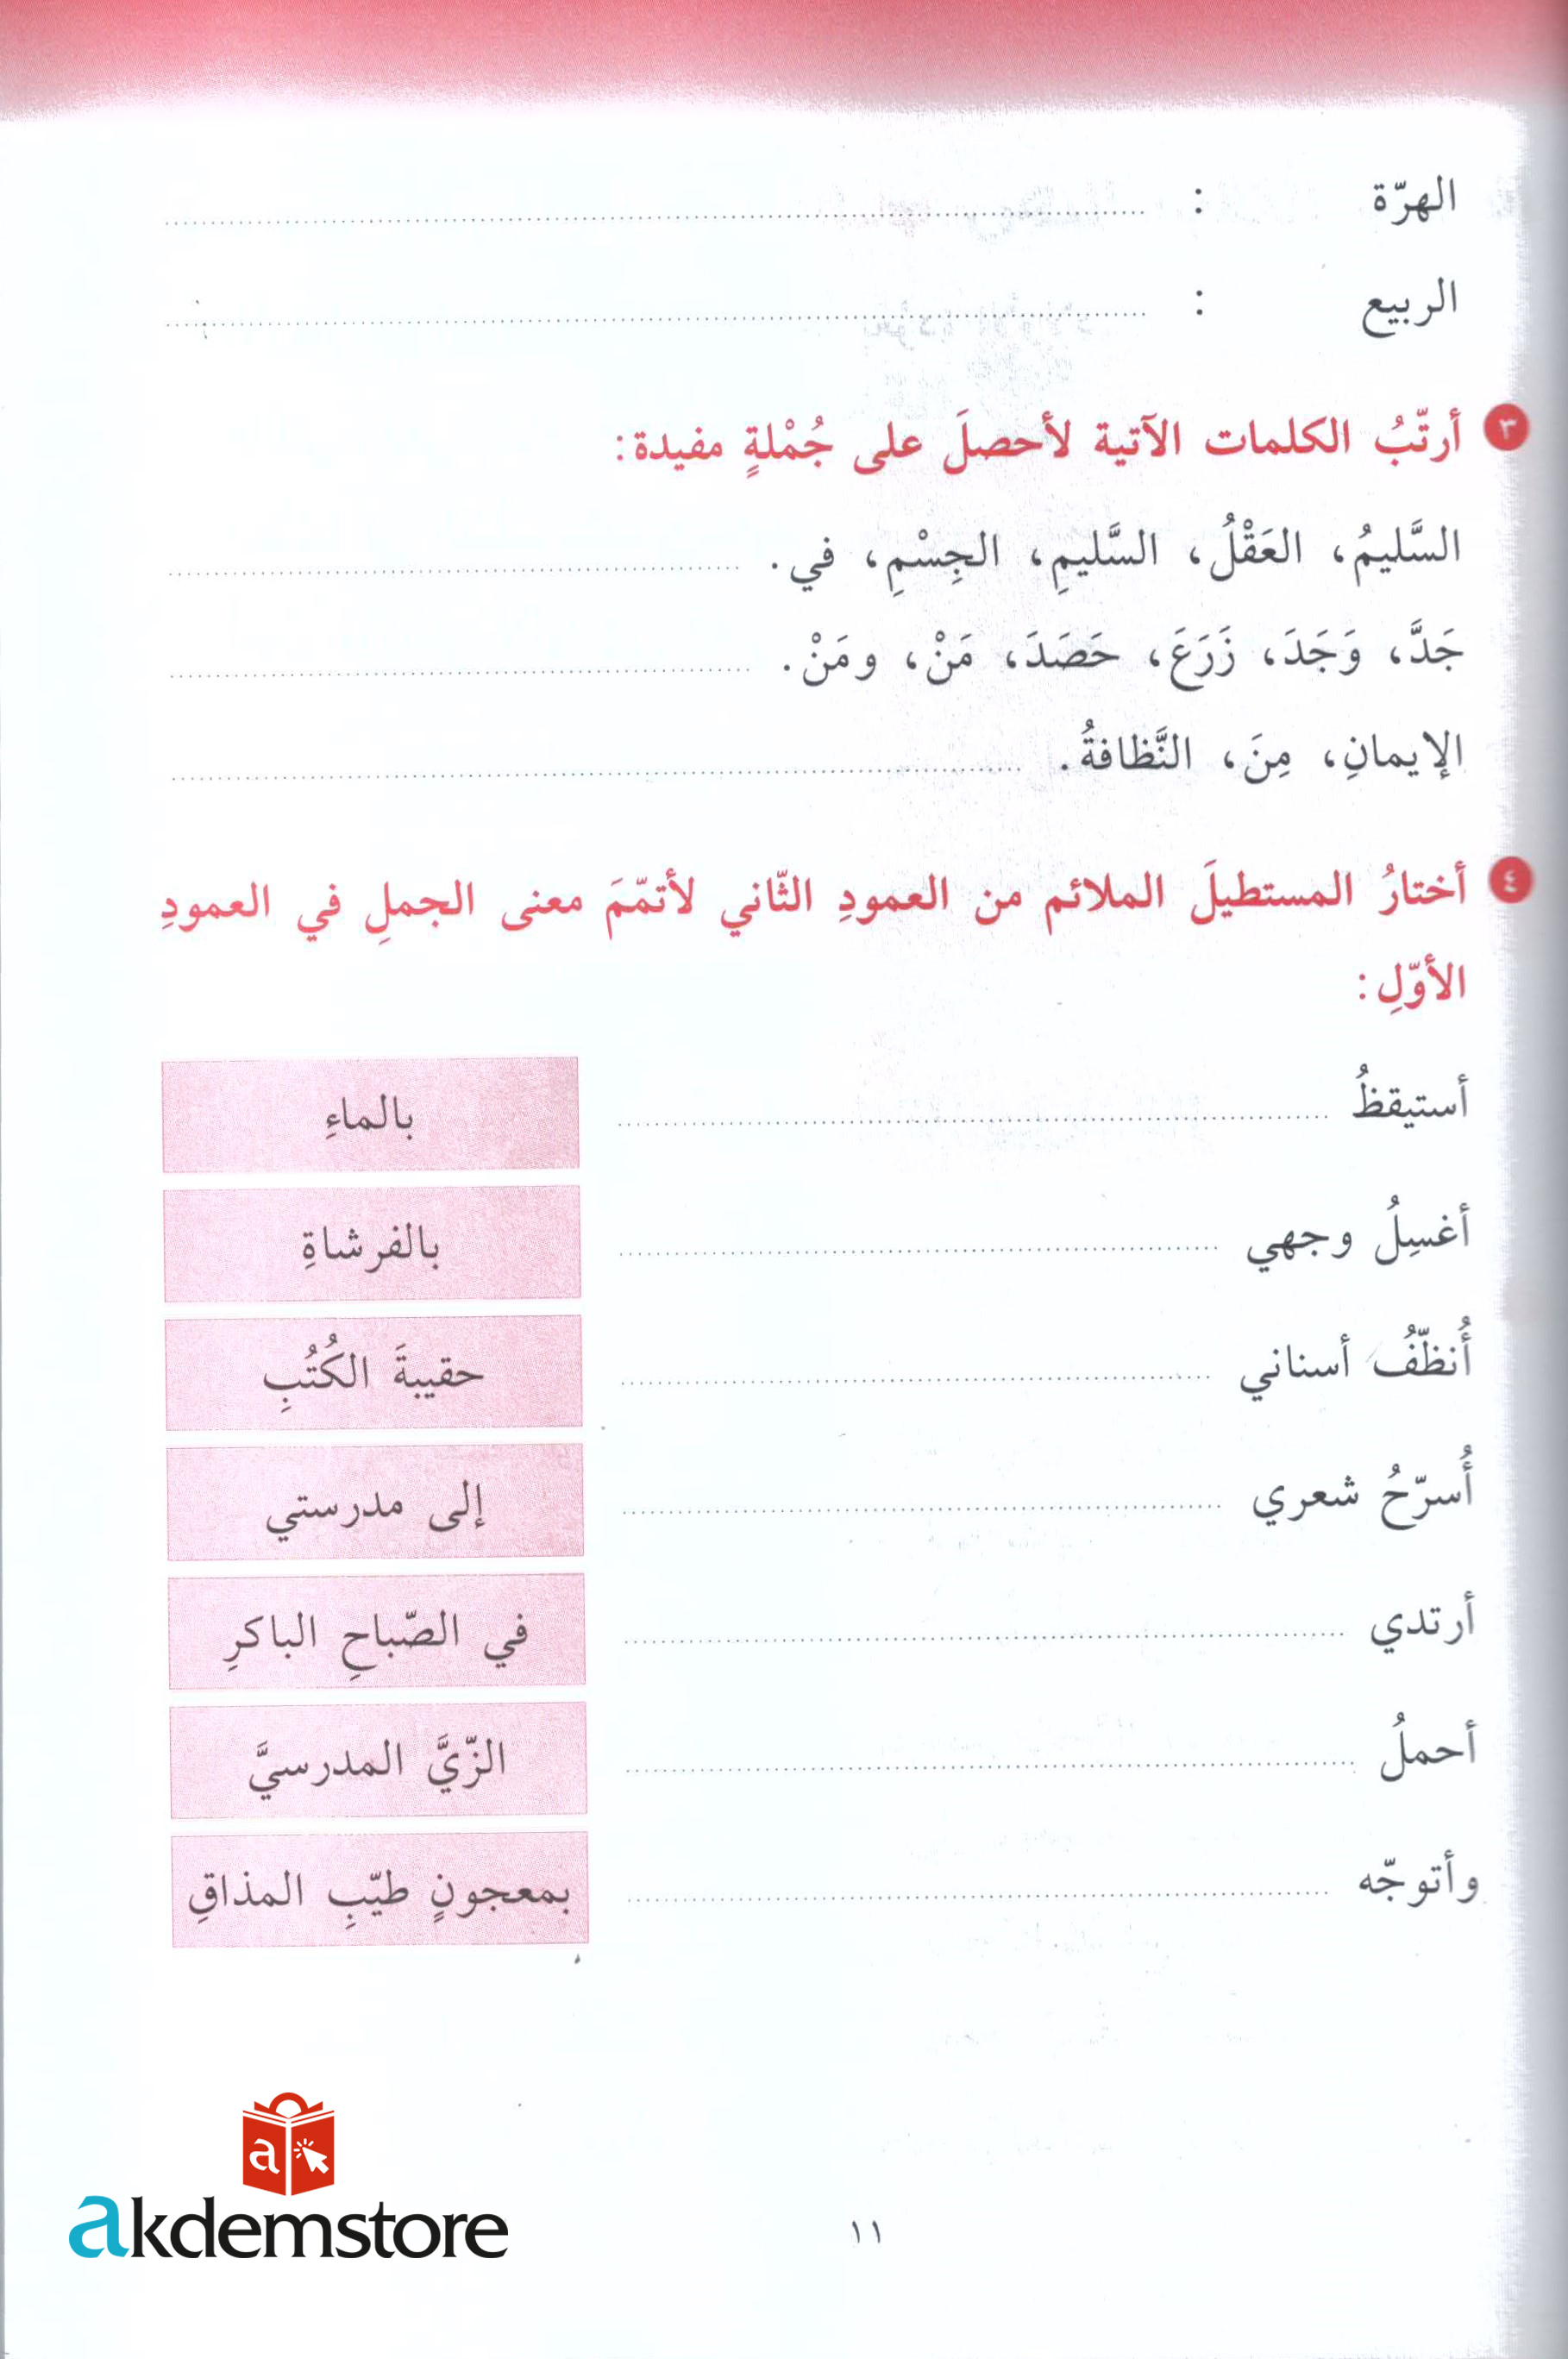 الهرّة : ........
الربيع : ........
٣ أرتّبُ الكلمات الآتية لأحصلَ على جُمْلةٍ مفيدة:
السَّليمُ، العَقْلُ، السَّليمِ، الجِسْمِ، في. ........
جَدَّ، وَجَدَ، زَرَعَ، حَصَدَ، مَنْ، ومَنْ. ........
الإيمانِ، مِنَ، النَّظافةُ. ........
٤ أختارُ المستطيلَ الملائم من العمودِ الثّاني لأتمّمَ معنى الجملِ في العمودِ
الأوّلِ:
أستيقظُ ........ بالماءِ
أغسِلُ وجهي ........ بالفرشاةِ
أُنظّفُ أسناني ........ حقيبةَ الكُتُبِ
أُسرّحُ شعري ........ إلى مدرستي
أرتدي ........ في الصّباحِ الباكرِ
أحملُ ........ الزّيَّ المدرسيَّ
وأتوجّه ........ بمعجونٍ طيّبِ المذاقِ
a
akdemstore
١١